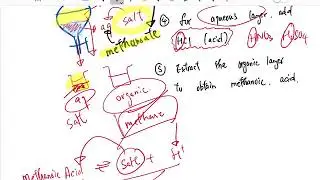 aq
salt
methanoate
④ for aqueous layer, add
HCl (acid) HNO₃ H₂SO₄
⑤ Extract the organic layer
to obtain methanoic acid.
aq
salt
organic
methane
Methanoic Acid ⇌ salt + H⁺